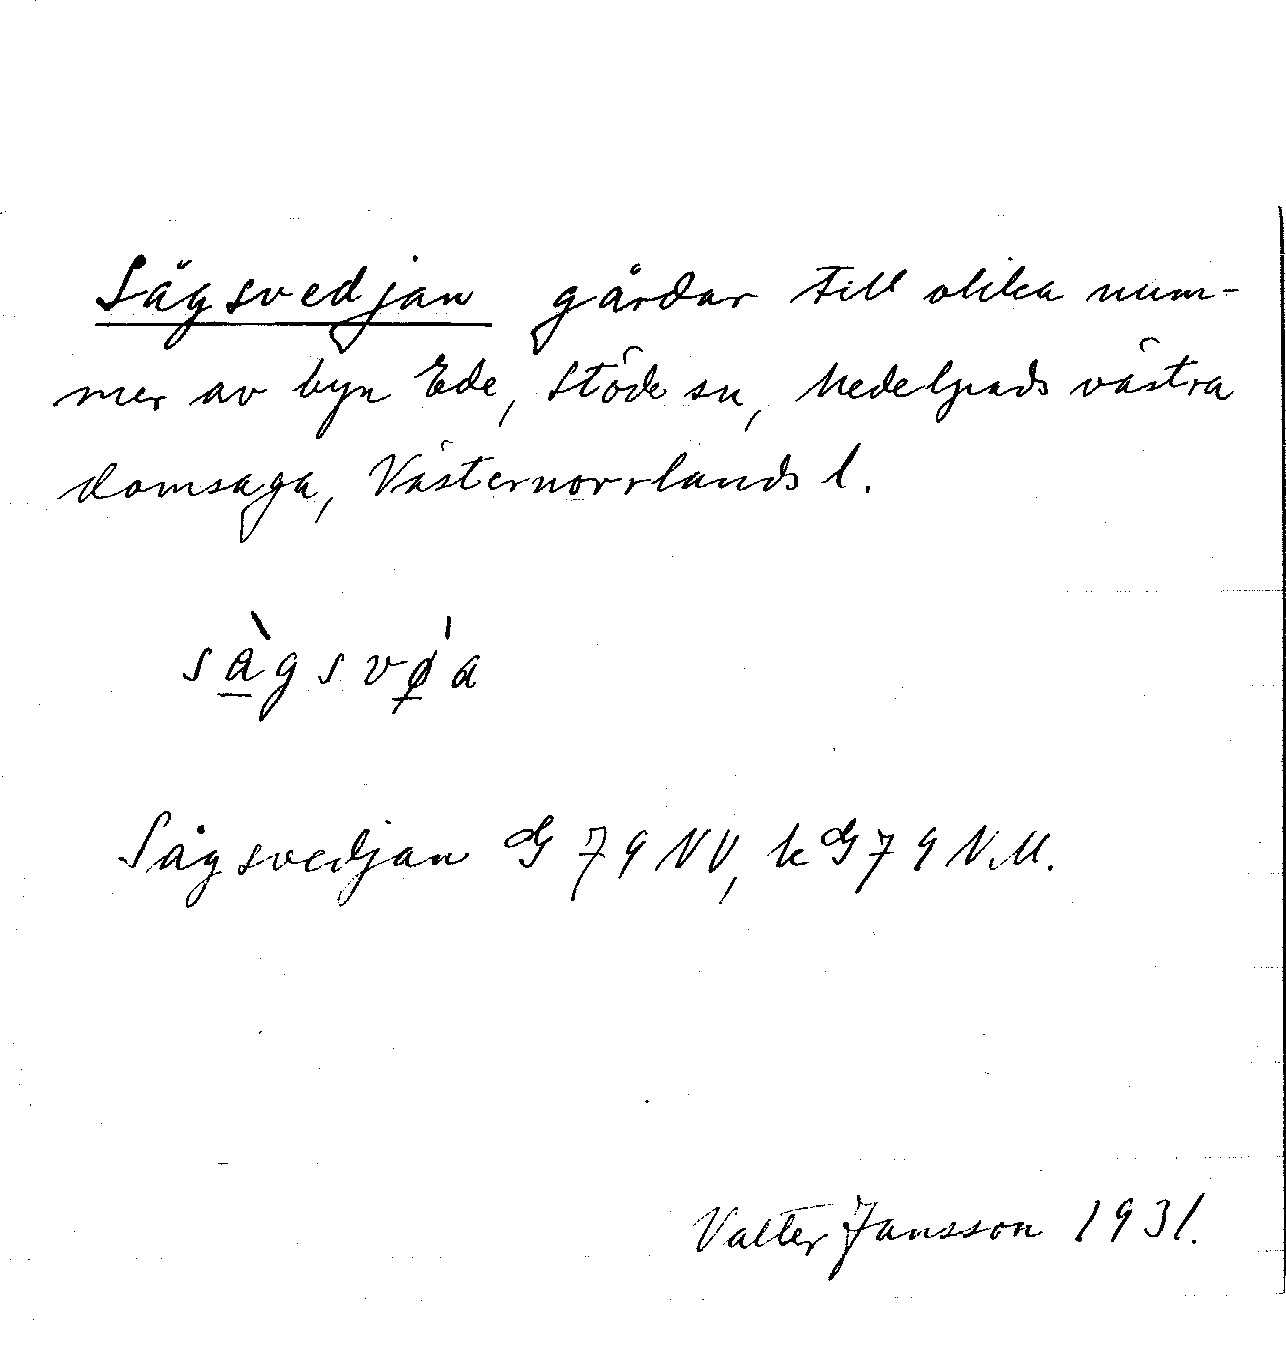 Sågsvedjan gårdar till olika num-
mer av byn Ede, Stöde sn, Medelpads västra
domsaga, Västernorrlands l.
Sågsvedjan G 79 NV, k G 79 N.M.
Valter Jansson 1931.